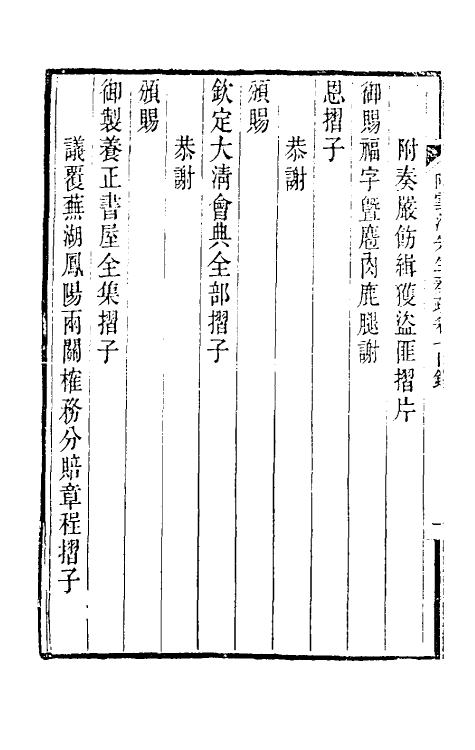 附奏嚴飭緝獲盜匪摺片
御賜福字曁麅肉鹿腿謝
恩摺子
恭謝
頒賜
欽定大淸會典全部摺子
恭謝
頒賜
御製養正書屋全集摺子
議覆蕪湖鳳陽兩關榷務分賠章程摺子